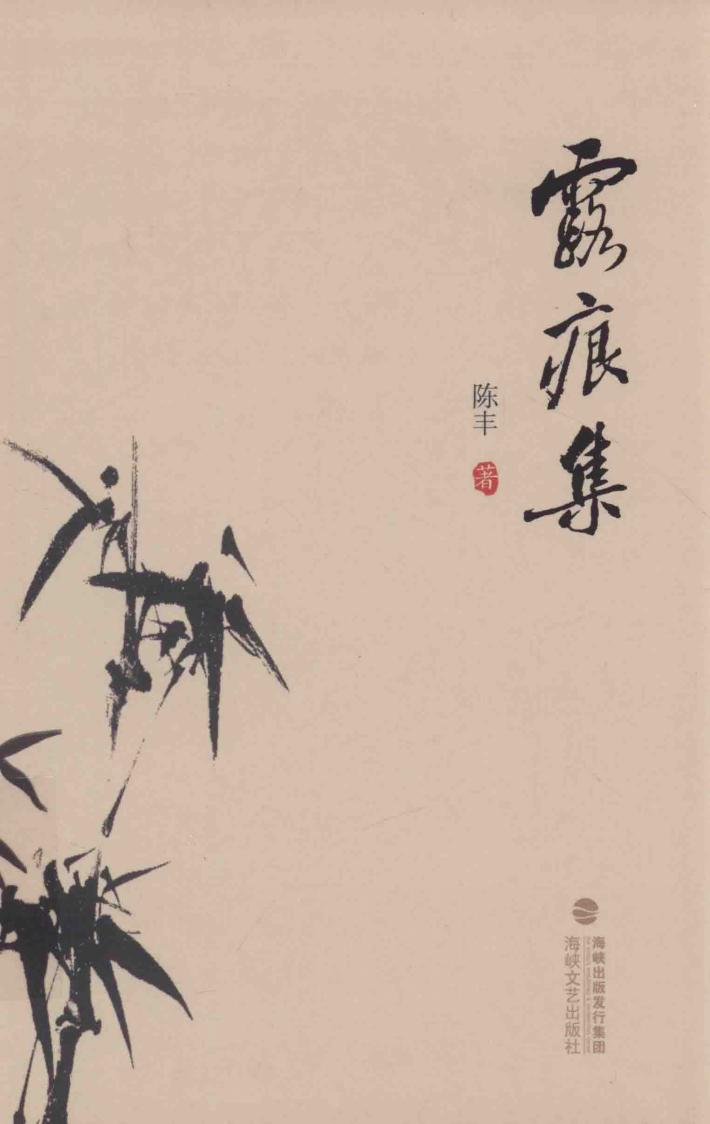 露痕集
陈丰 著
海峡出版发行集团
海峡文艺出版社